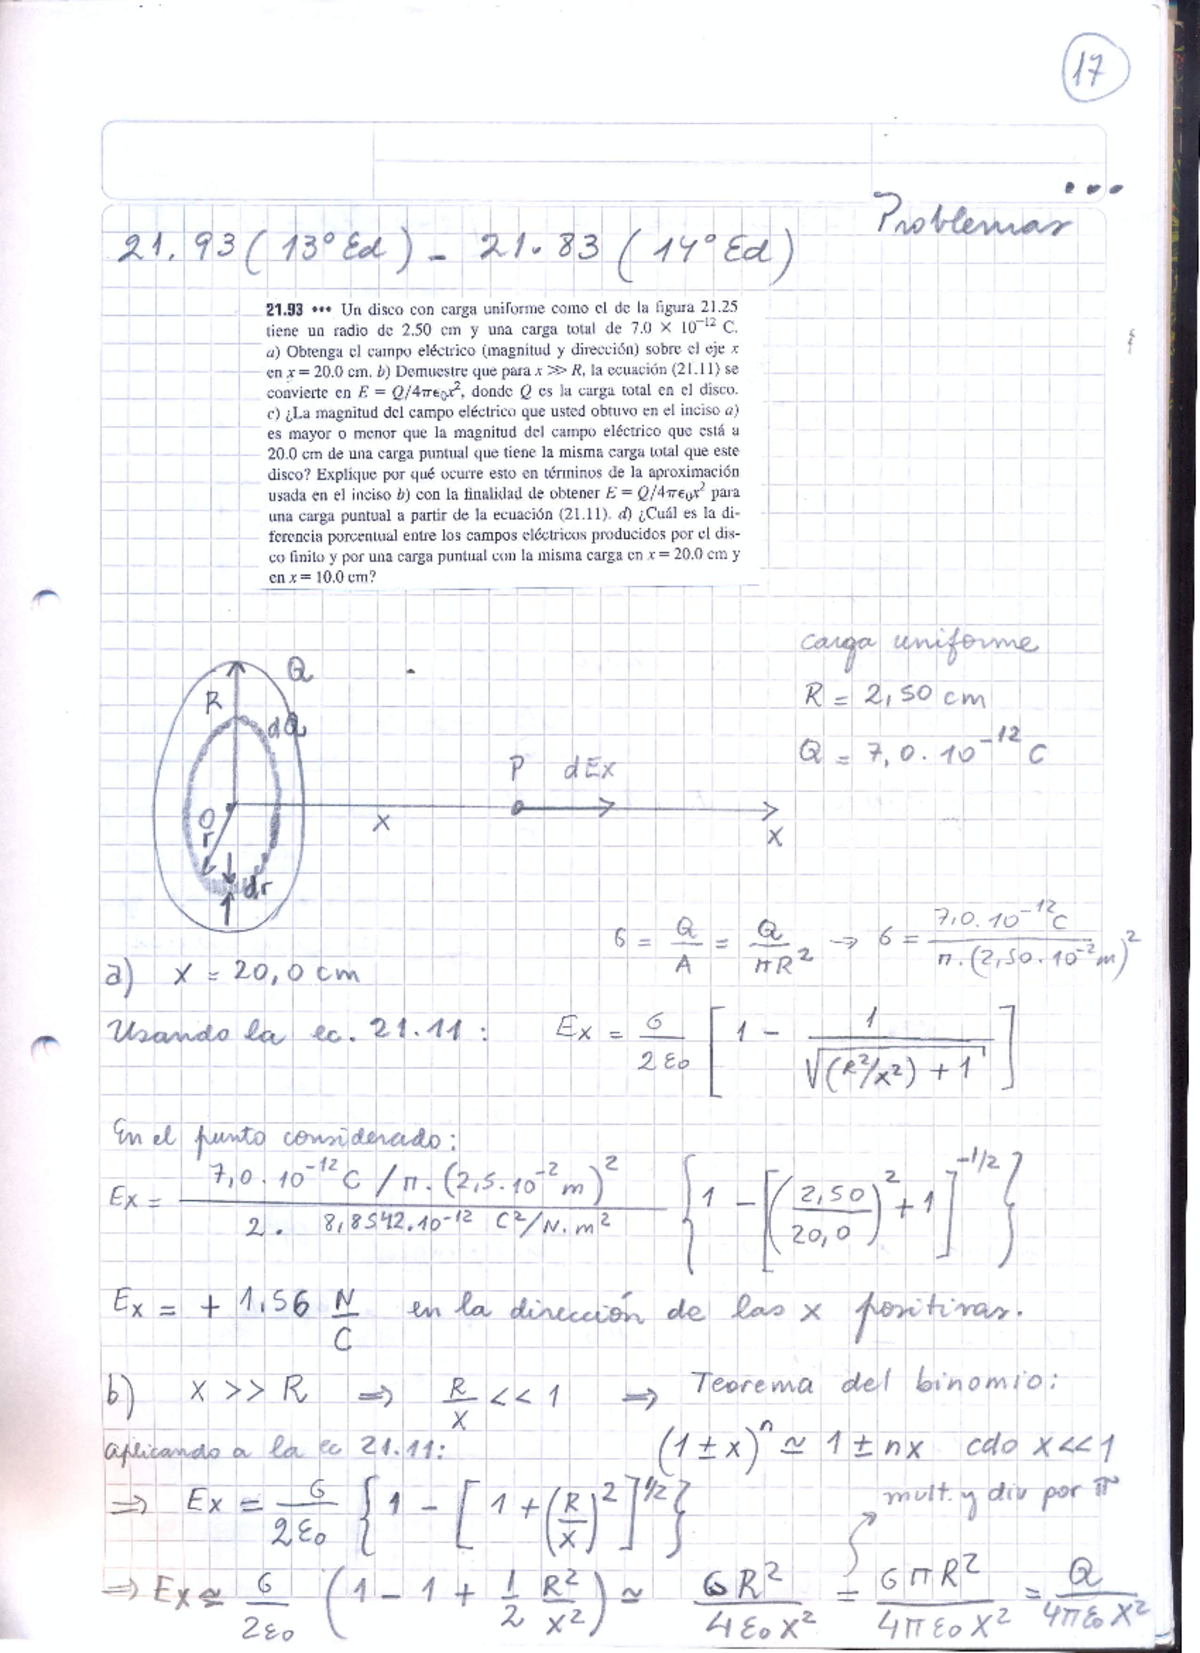 17
Problemas
21.93 (13° Ed) - 21.83 (14° Ed)
21.93 ••• Un disco con carga uniforme como el de la figura 21.25
tiene un radio de 2.50 cm y una carga total de 7.0 × 10⁻¹² C.
a) Obtenga el campo eléctrico (magnitud y dirección) sobre el eje x
en x = 20.0 cm. b) Demuestre que para x ≫ R, la ecuación (21.11) se
convierte en E = Q/4πϵ₀x², donde Q es la carga total en el disco.
c) ¿La magnitud del campo eléctrico que usted obtuvo en el inciso a)
es mayor o menor que la magnitud del campo eléctrico que está a
20.0 cm de una carga puntual que tiene la misma carga total que este
disco? Explique por qué ocurre esto en términos de la aproximación
usada en el inciso b) con la finalidad de obtener E = Q/4πϵ₀x² para
una carga puntual a partir de la ecuación (21.11). d) ¿Cuál es la di-
ferencia porcentual entre los campos eléctricos producidos por el dis-
co finito y por una carga puntual con la misma carga en x = 20.0 cm y
en x = 10.0 cm?
carga uniforme
R = 2,50 cm
Q = 7,0 . 10⁻¹² C
Q
R
dQ
P dEx
O
r
x
x
dr
σ = Q/A = Q/πR² → σ = 7,0.10⁻¹²C / π.(2,50.10⁻²m)²
a) x = 20,0 cm
Usando la ec. 21.11 : Ex = σ/2ε₀ [1 - 1/√((R²/x²) + 1)]
En el punto considerado:
Ex = 7,0 . 10⁻¹² C / π . (2,5.10⁻² m)² / 2 . 8,8542.10⁻¹² C²/N.m² {1 - [(2,50/20,0)² + 1]^-1/2}
Ex = + 1.56 N/C en la dirección de las x positivas.
b) x >> R ⇒ R/x << 1 ⇒ Teorema del binomio:
aplicando a la ec 21.11: (1 ± x)ⁿ ≃ 1 ± nx cdo x << 1
mult. y div por π
⇒ Ex = σ/2ε₀ {1 - [1 + (R/x)²]^1/2}
⇒ Ex ≃ σ/2ε₀ (1 - 1 + 1/2 R²/x²) ≃ σR²/4ε₀x² = σπR²/4πε₀x² = Q/4πε₀x²